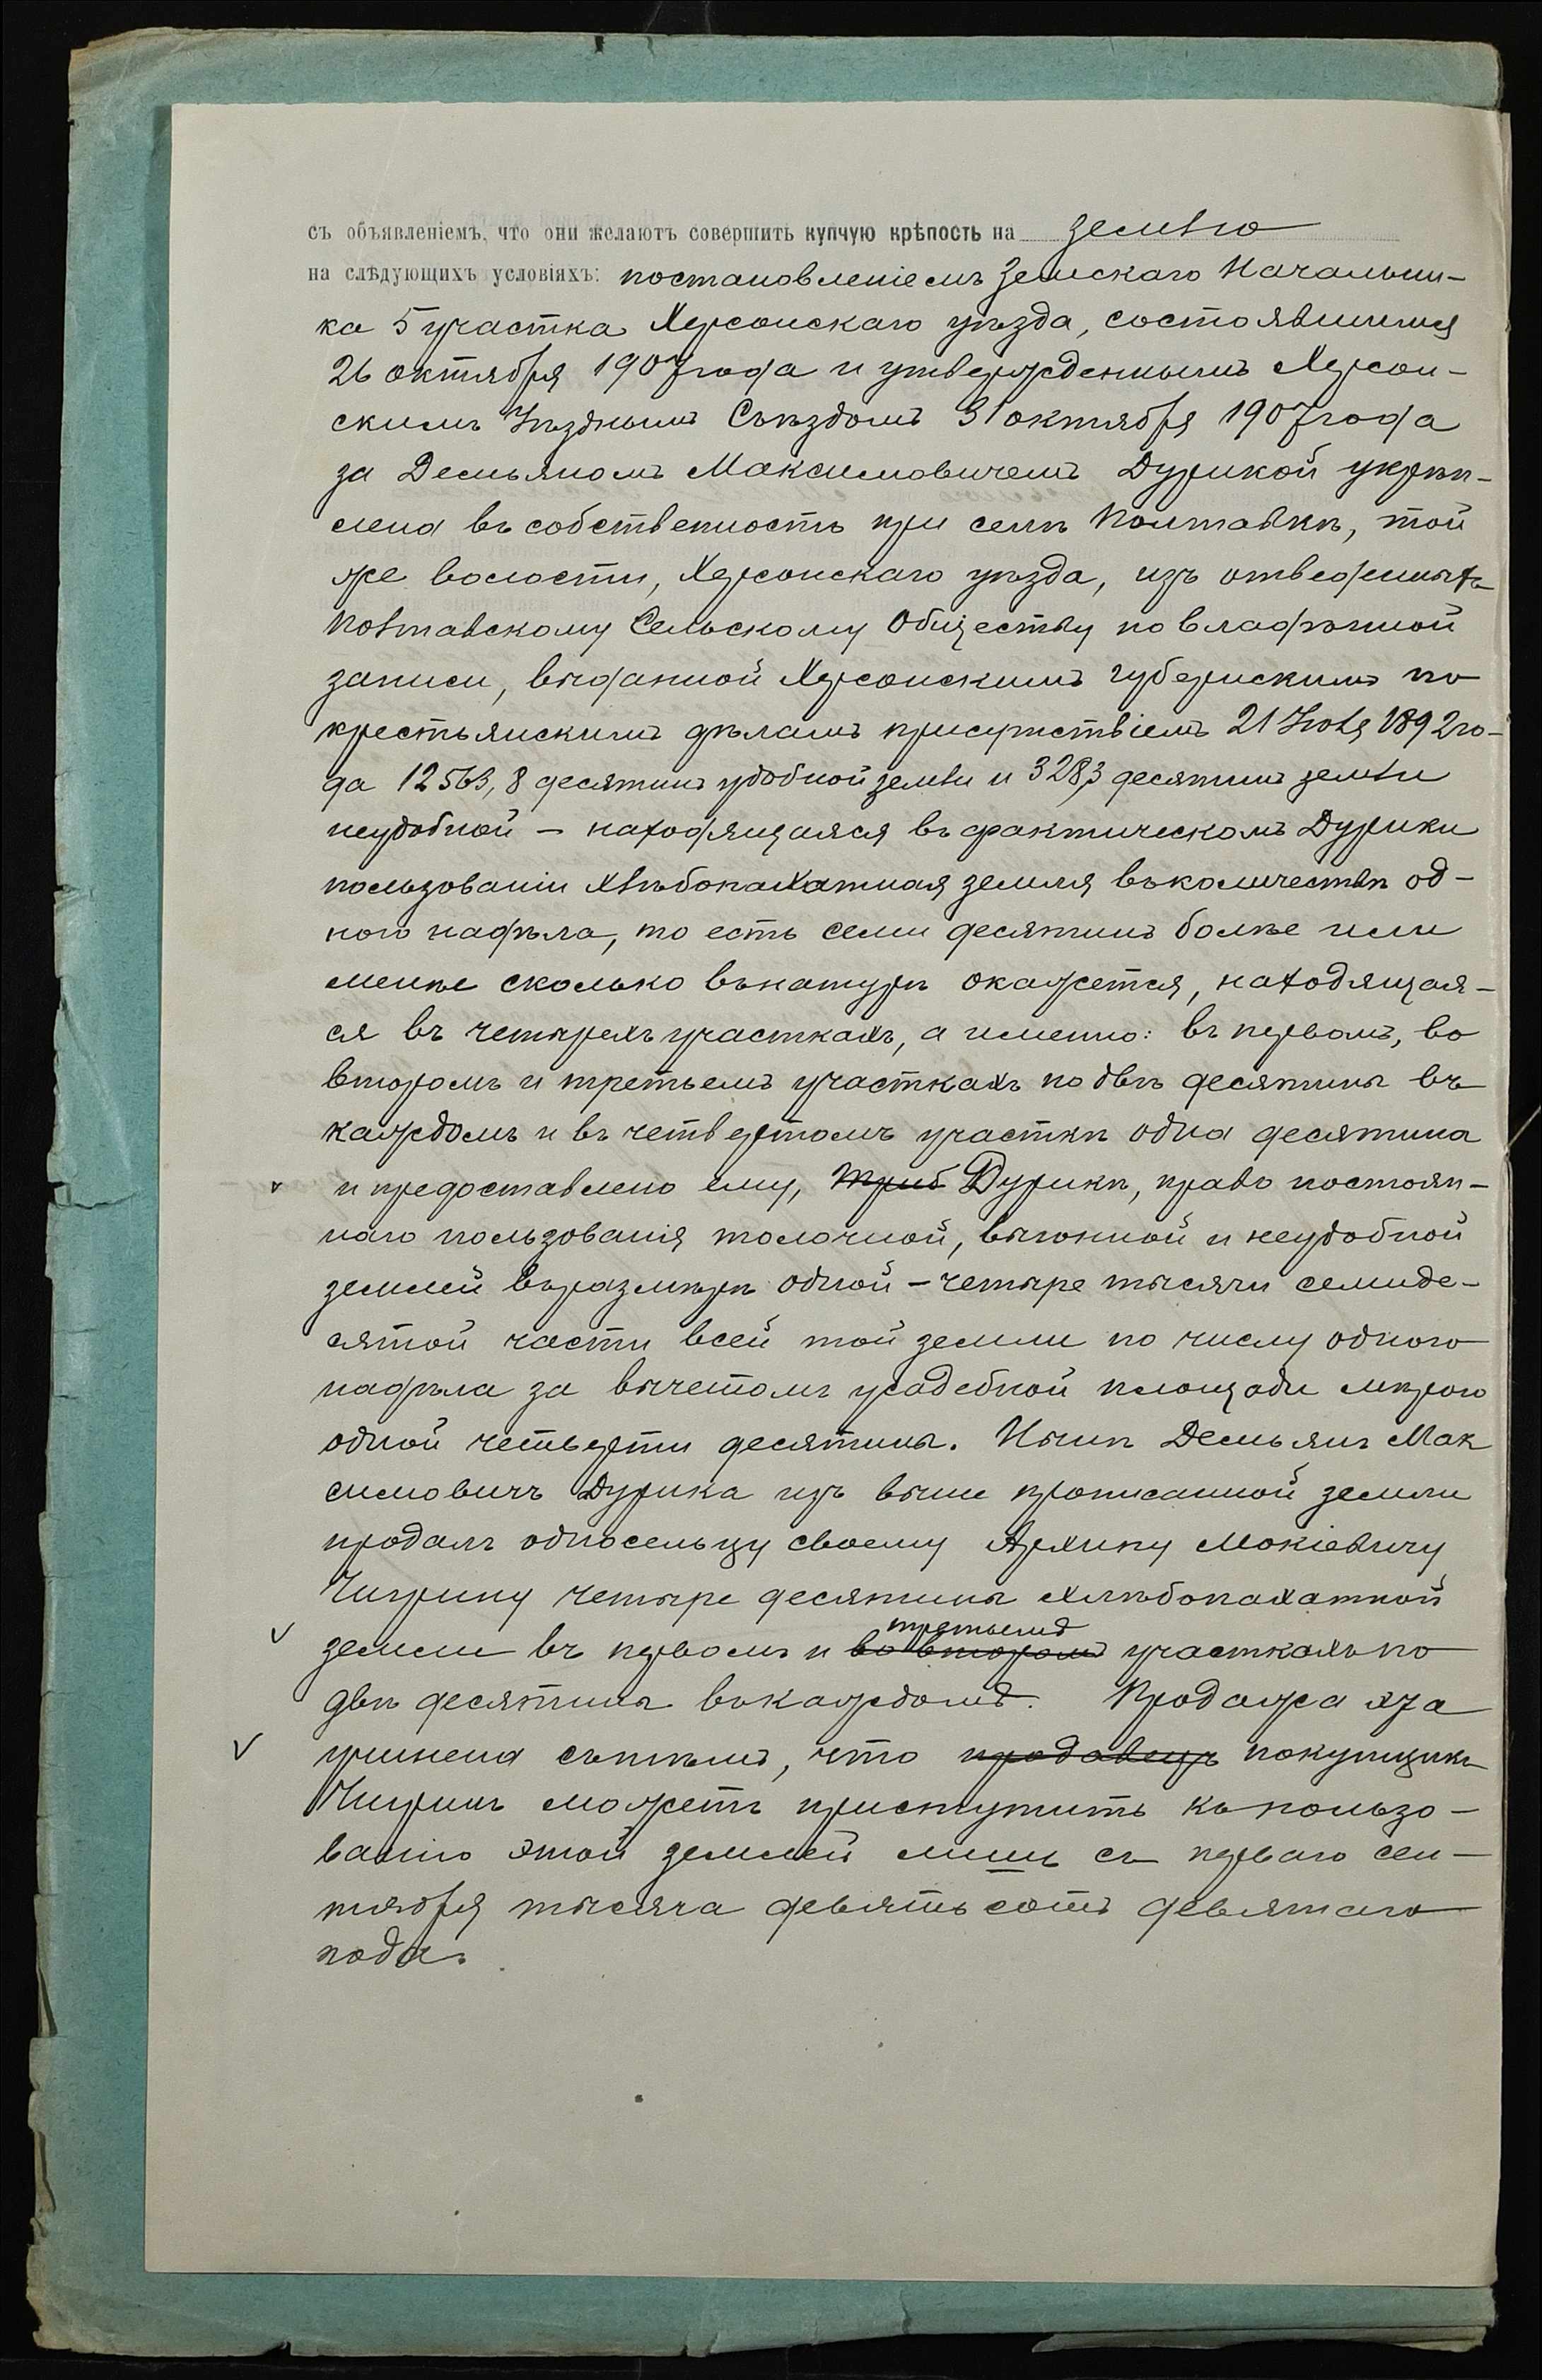 съ объявленіемъ, что они желаютъ совершить купчую крѣпость на землю
на слѣдующихъ условіяхъ: постановленіемъ Земскаго Начальни-
ка 5 участка Херсонскаго уѣзда, состоявшимся
26 октября 1907 года и утвержденнымъ Херсон-
скимъ Уѣзднымъ Съѣздомъ 31 октября 1907 года
за Демьяномъ Максимовичемъ Дурикой укрѣп-
лена въ собственность при селѣ Полтавкѣ, той
же волости, Херсонскаго уѣзда, изъ отведенныхъ
Полтавскому Сельскому Обществу по владѣнной
записи, выданной Херсонскимъ губернскимъ по
крестьянскимъ дѣламъ присутствіемъ 21 Іюля 1892 го-
да 12563,8 десятинъ удобной земли и 328,3 десятинъ земли
неудобной – находящаяся въ фактическомъ Дурики
пользованіи хлѣбопахатная земля въ количествѣ од-
ного надѣла, то есть семи десятинъ болѣе или
менѣе сколько въ натурѣ окажется, находящая-
ся въ четырехъ участкахъ, а именно: въ первомъ, во
второмъ и третьемъ участкахъ по двѣ десятины въ
каждомъ и въ четвертомъ участкѣ одна десятина
и предоставлено ему, Дурикѣ, право постоян-
наго пользованія толочной, выгонной и неудобной
землей въ размѣрѣ одной – четыре тысячи семиде-
сятой части всей той земли по числу одного
надѣла за вычетомъ усадебной площади мѣрою
одной четверти десятины. Нынѣ Демьянъ Мак
симовичъ Дурика изъ выше прописанной земли
продалъ односельцу своему Архипу Мокіевичу
Чигрину четыре десятины хлѣбопахатной
третьемъ
земли въ первомъ и во второмъ участкахъ по
двѣ десятины въ каждомъ. Продажа эта
учинена съ тѣмъ, что продавецъ покупщикъ
Чигринъ можетъ приступить къ пользо-
ванію этой землей лишь съ перваго сен-
тября тысяча девятьсотъ девятаго
года.